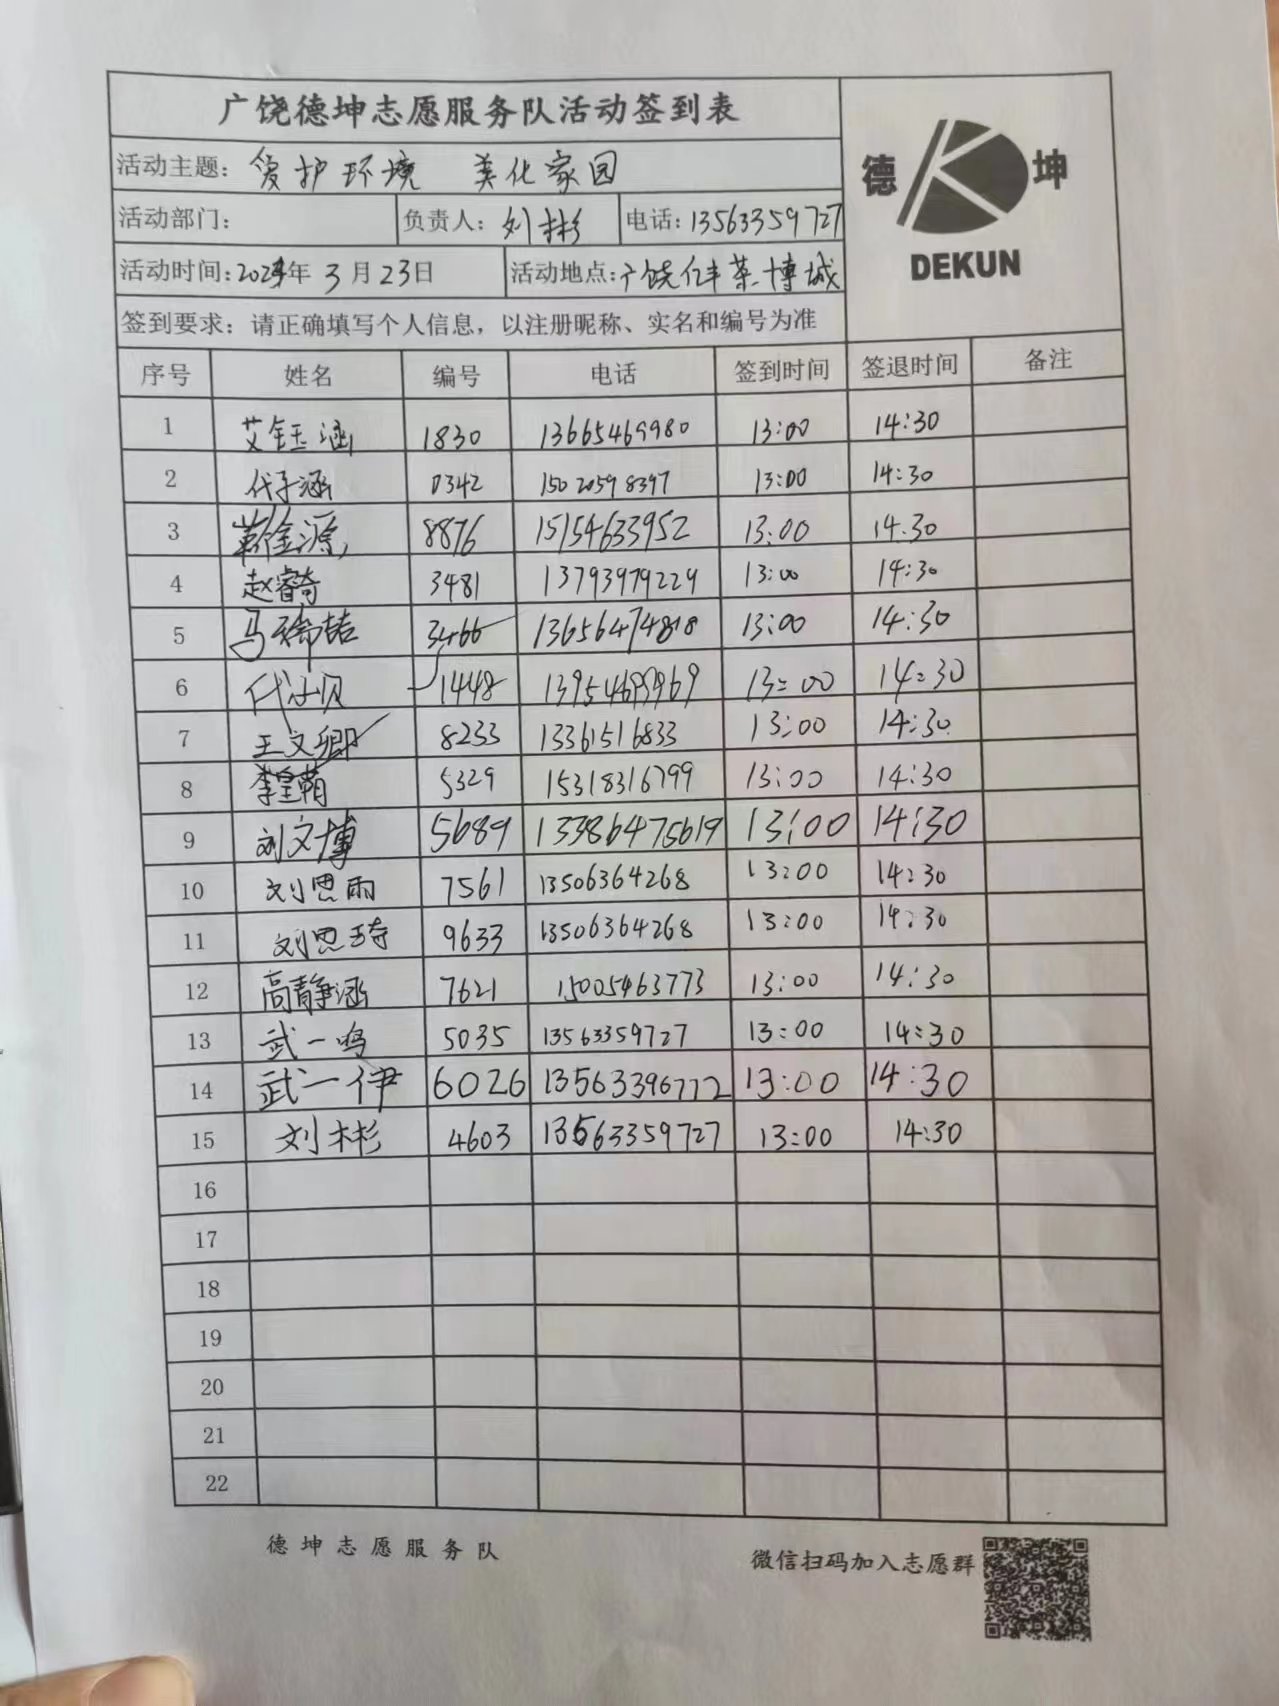 广饶德坤志愿服务队活动签到表
德 坤
DEKUN
活动主题：爱护环境 美化家园
活动部门： 负责人：刘彬彬 电话：13563359727
活动时间：2024年3月23日 活动地点：广饶亿丰菜博城
签到要求：请正确填写个人信息，以注册昵称、实名和编号为准
序号 姓名 编号 电话 签到时间 签退时间 备注
1 艾钰涵 1830 13665469980 13:00 14:30
2 代子涵 0342 15020598397 13:00 14:30
3 靳金源 8876 15154633952 13:00 14:30
4 赵睿奇 3481 13793979229 13:00 14:30
5 3466 13656474818 13:00 14:30
6 1448 13:00 14:30
7 王文卿 8233 13361516833 13:00 14:30
8 5329 15318316799 13:00 14:30
9 刘文博 5689 13386475619 13:00 14:30
10 刘思雨 7561 13506364268 13:00 14:30
11 刘思琦 9633 13506364268 13:00 14:30
12 高静涵 7621 15005463773 13:00 14:30
13 武一鸣 5035 13563359727 13:00 14:30
14 武一伊 6026 13563396772 13:00 14:30
15 刘彬彬 4603 13563359727 13:00 14:30
16
17
18
19
20
21
22
德坤志愿服务队 微信扫码加入志愿群